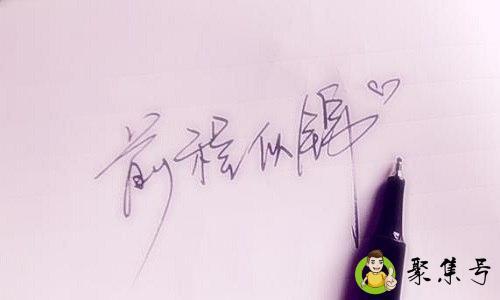 前程似锦
聚集号